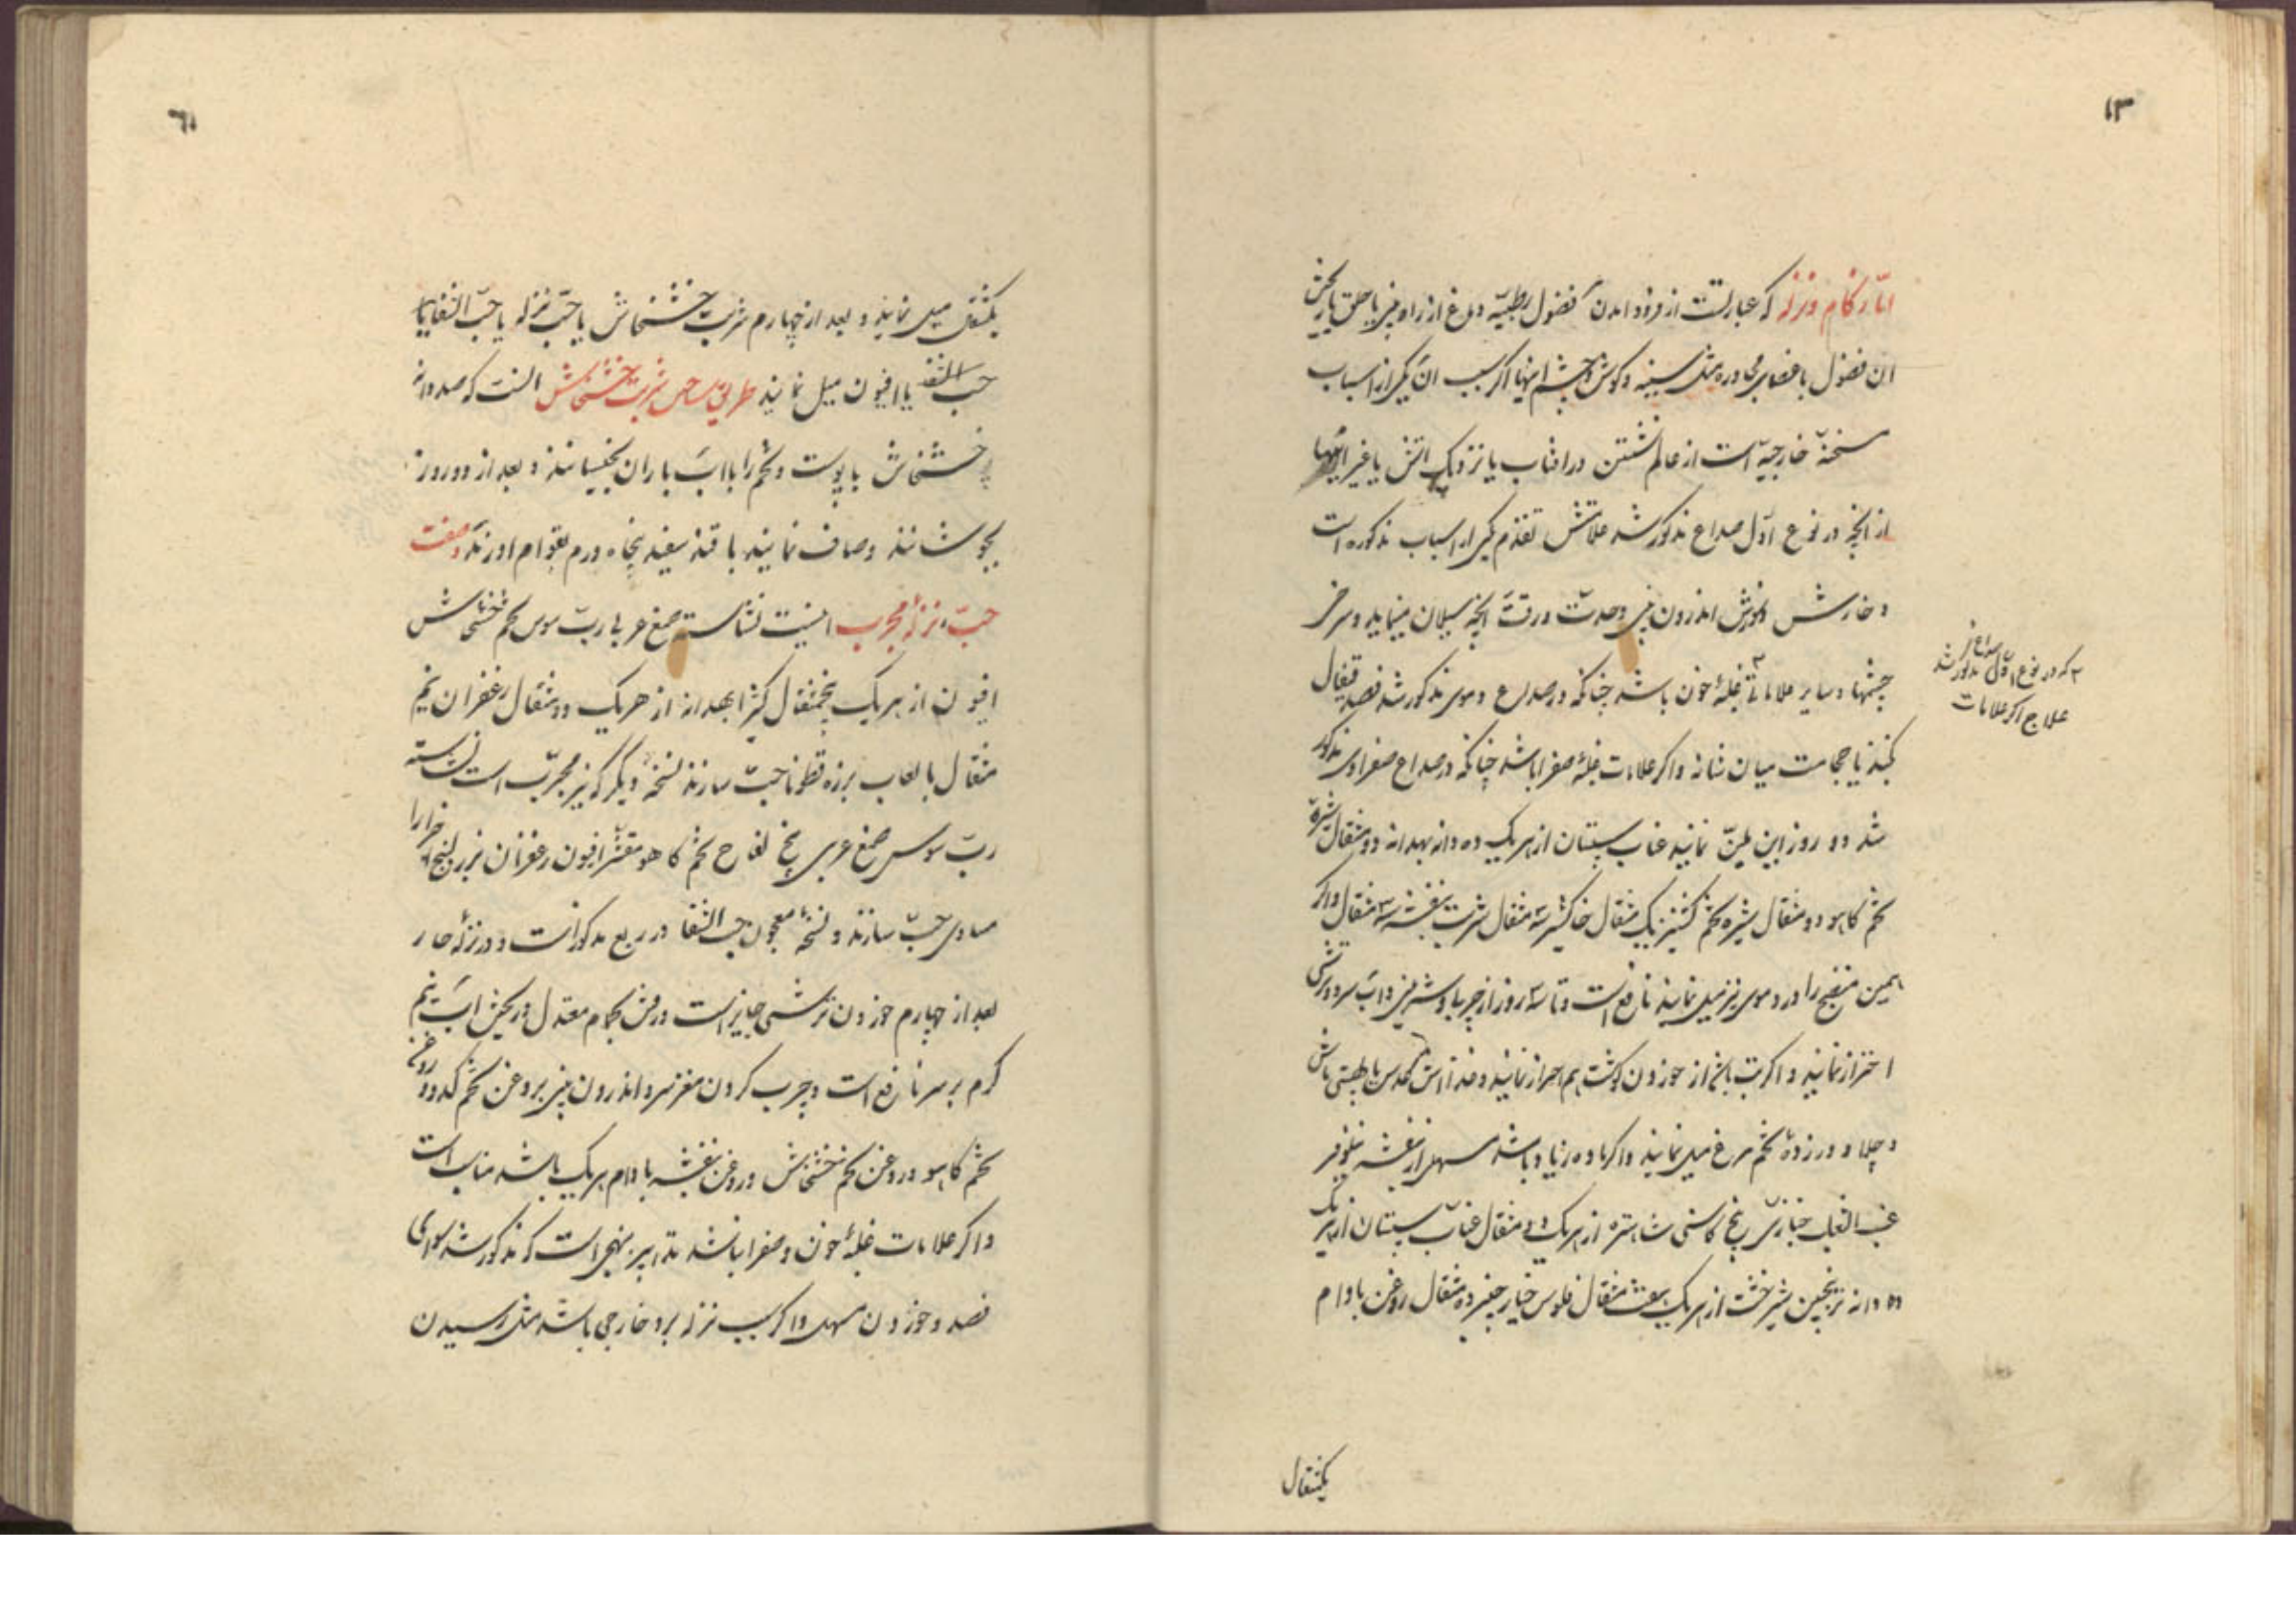 ۱۳
امّا زکام و نزله که عبارتست از فرود امدن فضول رطبیّه دماغ از راه بینی یا حلق یا ریختن
ان فضول باعضای مجاوره مثل سینه و کوش و چشم اینها اکر سبب ان یکی از اسباب
سخنهٔ خارجیّه است از عالم نشستن در افتاب یا نزدیک اتش یا غیر اینها
از انچه در نوع اوّل صداع مذکور شد علامتش تقدّم یکی از اسباب مذکوره است
و خارش و سوزش اندرون بینی و حدّت و رقّت انچه سیلان مینماید و سرخی
چشمها و سایر علامات غلبهٔ خون باشد چنانکه در صداع دموی مذکور شد فصد قیفال
که در نوع اوّل مذکور شد
علاج اکر علامات
کنند یا حجامت میان شانه و اکر علامات غلبهٔ صفرا باشد چنانکه در صداع صفراوی مذکور
شد دو روز این ملیّن نمایند عناب سپستان از هر یک ده دانه بهدانه دو مثقال شیرهٔ
تخم کاهو دو مثقال شیره تخم کشنیز یک مثقال خاکشیر سه مثقال شربت بنفشه سه مثقال و اکر
همین منضج را در دموی نیز میل نمایند نافع است و تا سه روز از چربی و شیرینی و اب سرد و ترشی
احتراز نمایند و اکر تب باشد از خوردن کوشت هم احتراز نمایند و غذا اش عدس یا ماش
و چلاو و زردهٔ تخم مرغ میل نمایند و اکر ماده زیاد باشد مسهل از بنفشه نیلوفر
عنب الثعلب خبازی بیخ کاسنی شاهتره از هر یک دو مثقال عناب سپستان از هر یک
ده دانه ترنجبین شیرخشت از هر یک هفت مثقال فلوس خیار چنبر ده مثقال روغن بادام
یکمثقال
یکمثقال میل نمایند و بعد از چهارم شربت خشخاش یا حبّ نزله یا حبّ الشفا یا
حب الشفا یا افیون میل نمایند طریق ساختن شربت خشخاش انست که صد دانه
خشخاش با پوست و تخم را با اب باران بخیسانند و بعد از دو روز
بجوشانند و صاف نمایند با قند سفید پنجاه درم بقوام اورند و صفت
حبّ نزلهٔ مجرب اینست نشاسته صمغ عربی ربّ سوس تخم خشخاش
افیون از هر یک پنجمثقال کثیرا بهدانه از هر یک دو مثقال زعفران نیم
مثقال با لعاب بزرقطونا حبّ سازند نسخهٔ دیگر که نیز مجرّب است نشاسته
ربّ سوس صمغ عربی بیخ لفاح تخم کاهو مقشر افیون زعفران بزرالبنج اجزا را
مساوی حبّ سازند و نسخهٔ معجون حب الشفا در ربع مذکور است و در نزلهٔ حار
بعد از چهارم خوردن ترشی جایز است و رفتن بحمام معتدل و ریختن اب نیم
کرم بر سر نافع است و چرب کردن مغز سر و اندرون بینی بروغن تخم کدو و روغن
تخم کاهو و روغن تخم خشخاش و روغن بنفشه بادام هر یک باشد مناسب است
و اکر علامات غلبهٔ خون و صفرا نباشد تدابیر بنهجی است که مذکور شد سوای
فصد و خوردن مسهل و اکر سبب نزله برد خارجی باشد مثل رسیدن